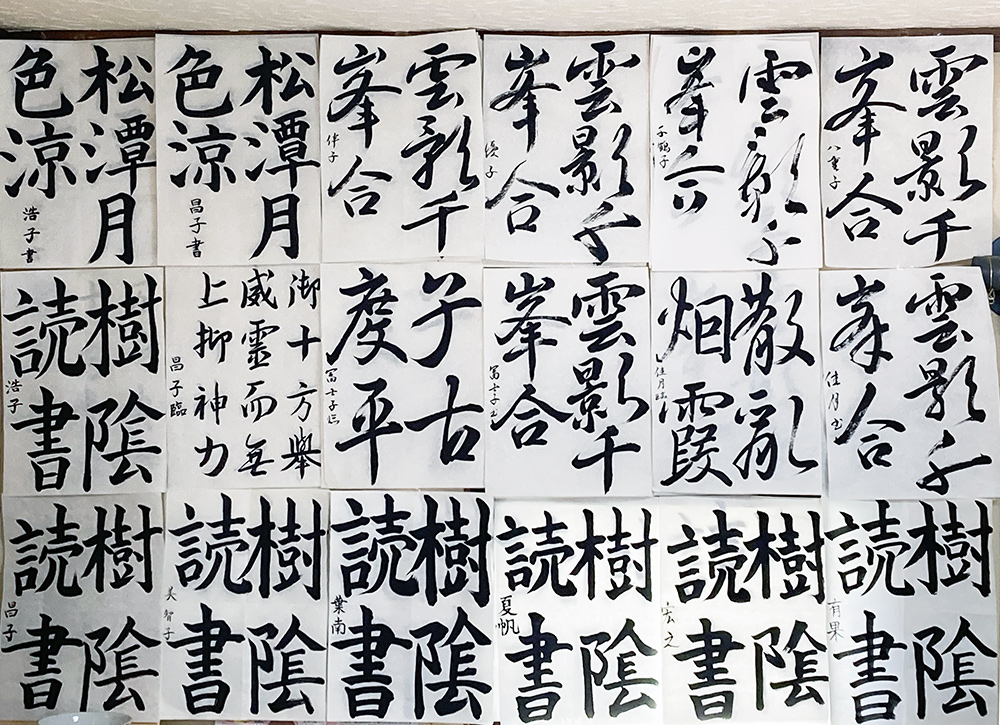 松潭月
色涼
浩子書
松潭月
色涼
昌子書
雲影千
峯合
伴子
雲影千
峯合
雲影千
峯合
千鶴子
雲影千
峯合
八重子
樹陰
読書
浩子
御十方舉
威靈而無
上抑神力
昌子臨
子古
度平
冨士子臨
雲影千
峯合
冨士子書
散亂
烟霞
佳月臨
雲影千
峯合
佳月書
樹陰
読書
昌子
樹陰
読書
美智子
樹陰
読書
葉南
樹陰
読書
夏帆
樹陰
読書
宏之
樹陰
読書
有果